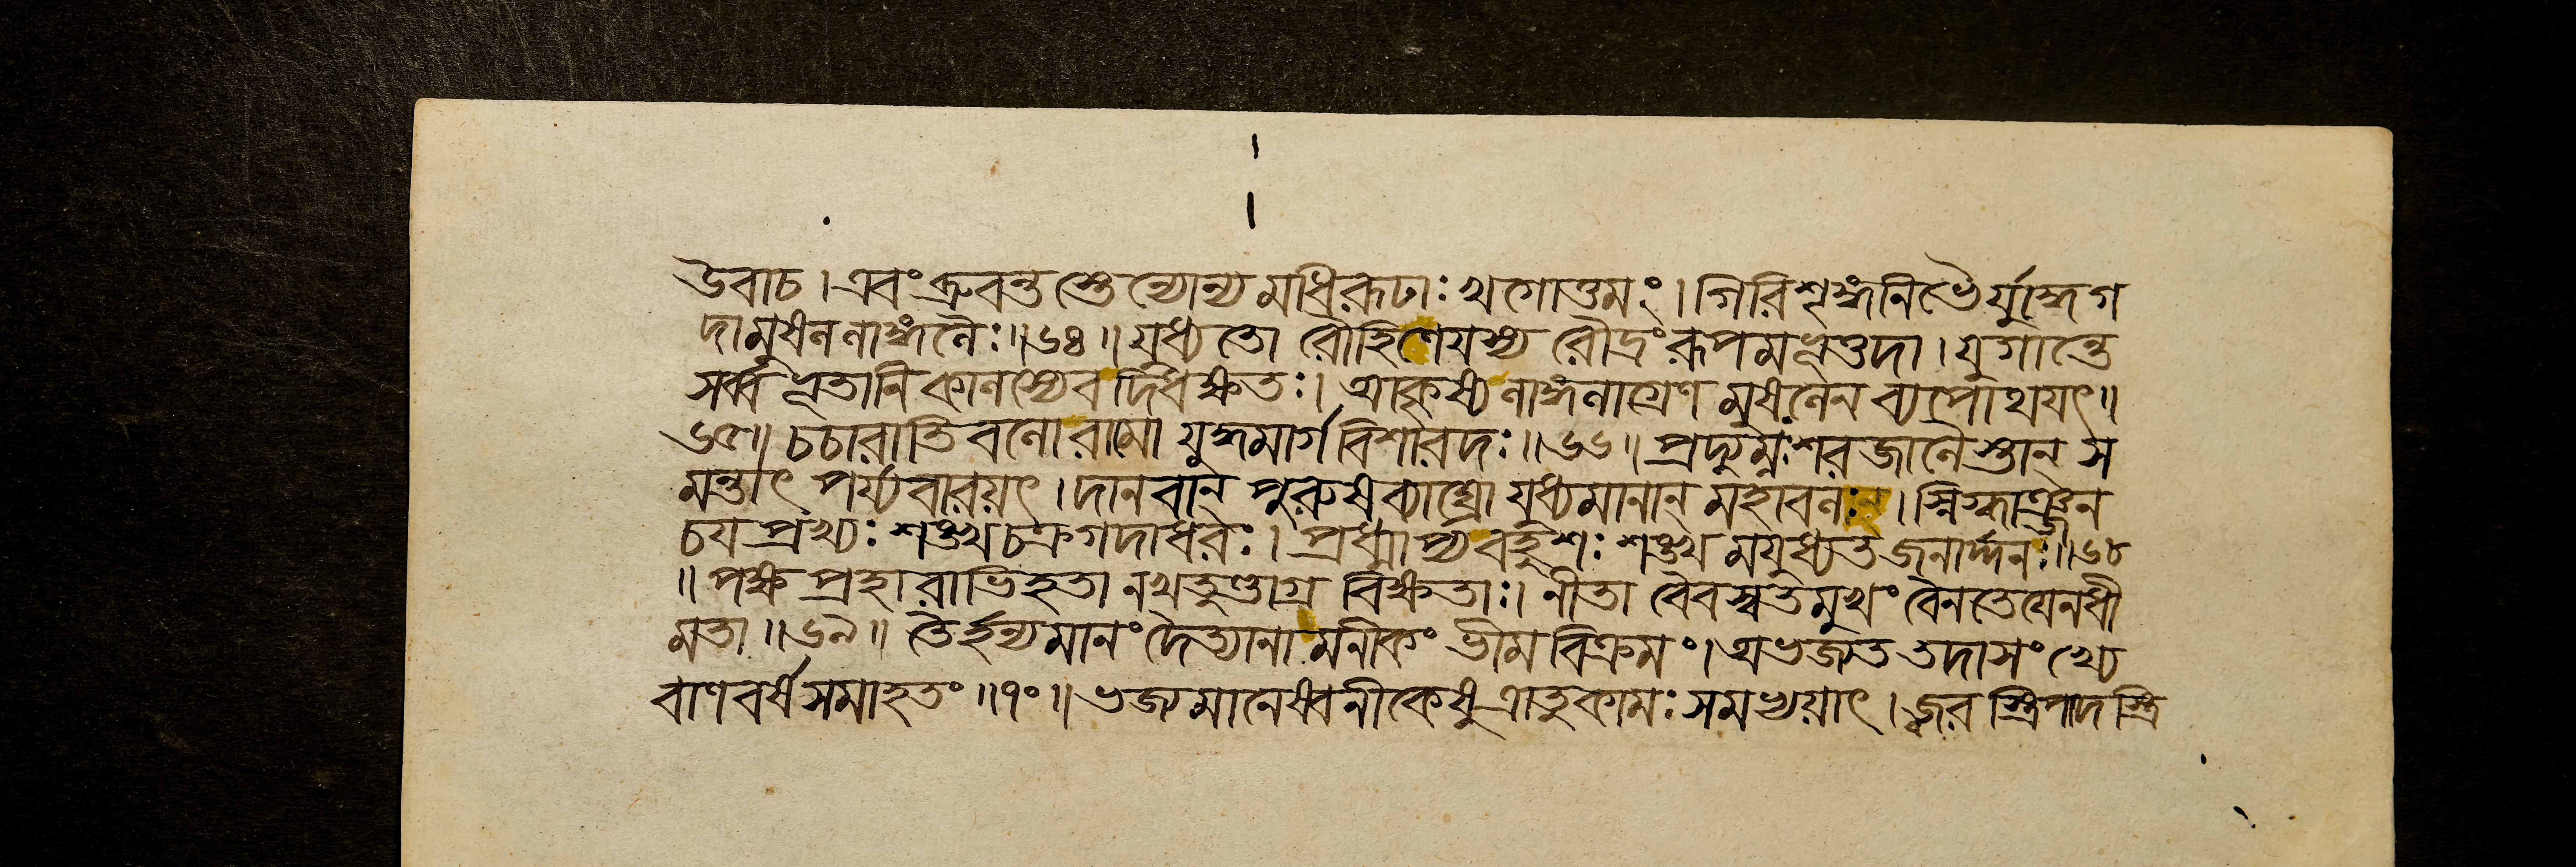 উবাচ। এবং ব্রুবন্তস্তেন্যোন্যমধিরূঢাঃ খগোত্তমং। গিরিশৃঙ্গনিভৈর্যুক্তেগ
দামুষললাঙ্গলৈঃ॥৬৪॥ যুধ্যতো রৌহিণেযস্য রৌদ্রং রূপমভূত্তদা। যুগান্তে
সর্ব্বভূতানি কালস্যেব দিধক্ষতঃ। আকৃষ্য লাঙ্গলাগ্রেণ মুষলেন ব্যপোথযৎ॥
৬৫॥ চচারাতিবলো রামো যুদ্ধমার্গবিশারদঃ॥৬৬॥ প্রদ্যুম্নঃ শরজালৈস্তান্ স
মন্তাৎ পর্য্যবারয়ৎ। দানবান্ পুরুষব্যাঘ্রো যুধ্যমানান্ মহাবলঃ। স্নিগ্ধাঞ্জন
চয প্রখ্যঃ শঙ্খচক্রগদাধরঃ। প্রধ্মাপ্য বহুশঃ শঙ্খমযুধ্যত জনার্দ্দনঃ॥৬৮
॥ পক্ষপ্রহারাভিহতা নখতুণ্ডাগ্র বিক্ষতাঃ। নীতা বৈবস্বতমুখং বৈনতেযেন ধী
মতা॥৬৯॥ তৈর্হন্যমানং দৈত্যানামনীকং ভীমবিক্রমং। অভজ্যত তদা সংখ্যে
বাণবর্ষসমাহতং॥৭০॥ ভজ্যমানেষ্বনীকেষু ত্রাতুকামঃ সমভ্যয়াৎ। জ্বরস্ত্রিপাদস্ত্রি